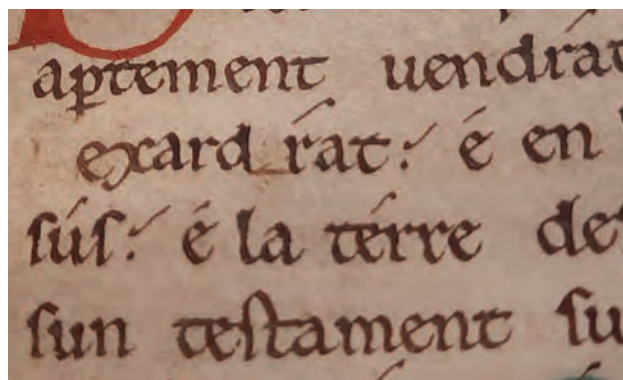 apꝑtement uendrat
exard rát؛ é en
ſúſ؛ é la térre de
ſun teſtament ſu